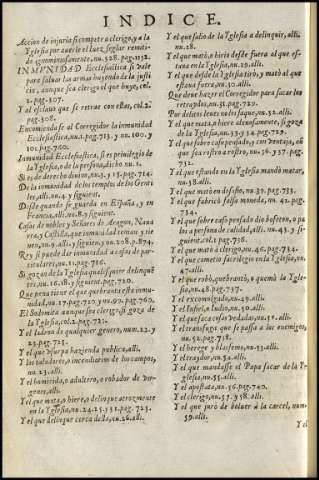 INDICE.
Accion de injuria si compete a clerigo, y a la
Yglesia por averle el Iuez seglar remeti-
do ignominosamente, nu.328. pag.1152.
INMVNIDAD Ecclesiastica si vale
para salvar las armas huyendo de la justi
cia, aunque sea clerigo el que huye, col.
2. pag.307.
Y al esclavo que se retrae con ellas, col.2.
pag.308.
Encomiendase al Corregidor la inmunidad
Ecclesiastica, col.2. pag.713. y nu.100. y
101. pag.760.
Inmunidad Ecclesiastica, si es privilegio de
la Yglesia, o de la persona, dicho nu.2.
Si es de derecho divino, nu.3. y 15. pag.714.
De la inmunidad de los templos de los Genti
les, alli, nu.4. y siguient.
Desde quando se guarda en España, y en
Francia, alli, nu.8. y siguient.
Casas de nobles y Señores de Aragon, Nava
rra, y Castilla, que inmunidad tenian y tie
nen, nu.9. alli, y siguient. y nu.208. p.874.
Rey si puede dar inmunidad a casas de par-
ticulares, nu.12. pag.716.
Si gozan de la Yglesia qualesquier delinquẽ
tes, nu.16.18. y siguient. pag.720.
Que pena tiene el que quebranta esta inmu-
nidad, nu.17. pag.720. y nu.99. pag.760.
El Sodomita aunque sea clerigo, si goza de
la Yglesia, col.2. pag.722.
Y el ladron de qualquier genero, num.22. y
23. pag.723.
Y el que usurpa hazienda publica, alli.
Y los taladores, o incendiarios de los campos,
nu.23. alli.
Y el homicida, o adultero, o robador de vir-
genes, alli.
Y el que mata, o hiere, o delinque atrozmente
en la Yglesia, nu.24.25. y 31. pag.725.
Y el que delinque cerca della, nu.26. alli.
Y el que salio de la Yglesia a delinquir, alli,
nu.28.
Y el que mató, o hirio desde fuera al que es-
tava en Yglesia, nu.29. alli.
Y el que desde la Yglesia tiró, y mató al que
estava fuera, nu.30. alli.
Que deve hazer el Corregidor para sacar los
retraydos, nu.31. pag.729.
Por delitos leves no los saque, nu.32. alli.
Y el que mata, o hiere alevosamente, si goza
de la Yglesia, nu.33. y 34. pag.729.
Y el que sobre caso pensado, y con ventaja, o
que sea rostro a rostro, nu.36. y 37. pag.
732.
Y el que estando en la Yglesia mandó matar,
nu.38. alli.
Y el que mató en desafio, nu.39. pag.733.
Y el que fabricó falsa moneda, nu.42. pag.
734.
Y el que sobre caso pensado dio bofeton, o pa
los a persona de calidad, alli, nu.43. y si-
guiente, col.2. pag.738.
Y el que mató a clerigo, nu.46. pag.734.
Y el que cometio sacrilegio en la Yglesia, nu.
47. alli.
Y el que robó, quebrantó, o quemó la Ygle-
sia, nu.48. pag.737.
Y el excomulgado, nu.49. alli.
Y el Infiel, o Iudio, nu.50. alli.
Y el que saca cosas vedadas, nu.51. alli.
Y el transfuga que se passa a los enemigos,
nu.52. pag.738.
Y el herege y blasfemo, nu.53. alli.
Y el traydor, nu.54. alli.
Y el que mandasse el Papa sacar de la Yg
lesia, nu.55. alli.
Y el apostata, nu.56. pag.740.
Y el clerigo, nu.57. y 58. alli.
Y el que juró de bolver à la carcel, num.
59. alli.
Y el